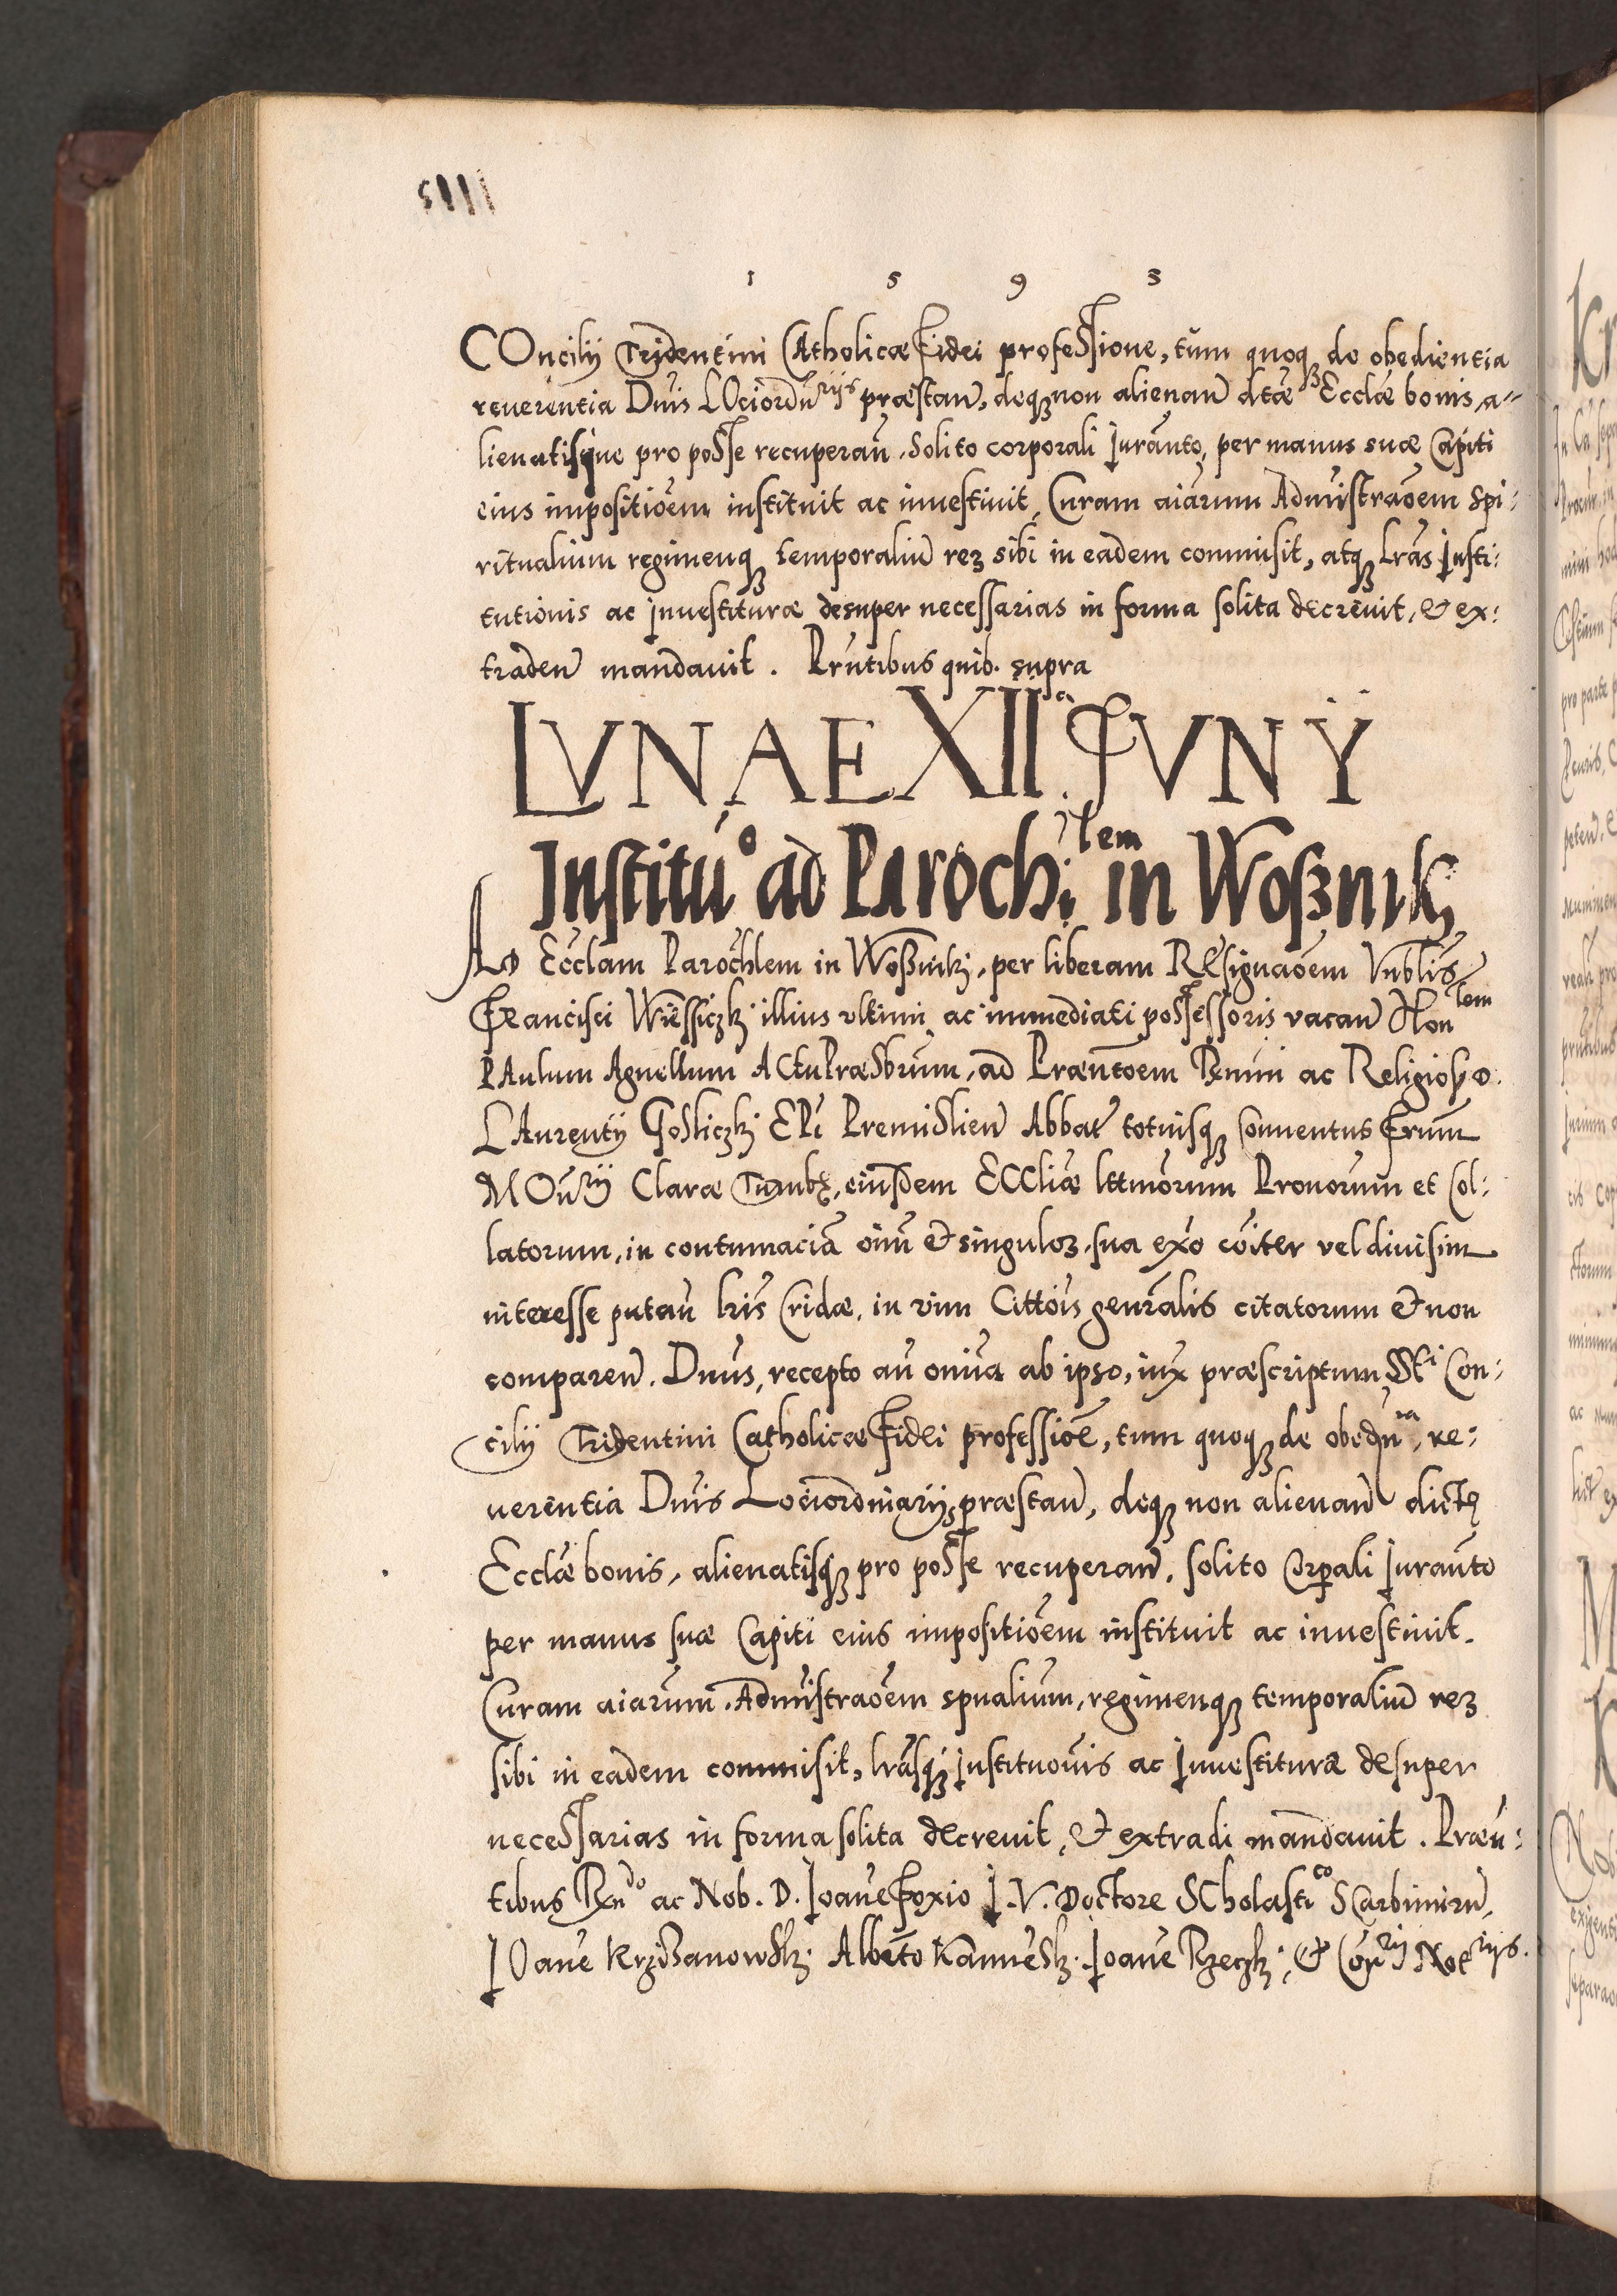 1 5 9 3
COncilij Tridentini CAtholicæ Fidei professione, tum quoq de obedientia
reuerentia Dnis LOciordnrijs præstan, deq non alienan dtæ Ecclæ bonis, a=
lienatisque pro posse recuperan. Solito corporali Iuranto, per manus suæ Capiti
eius impositioem instituit ac inuestiuit, Curam aiarum Admistraoem Spi:
ritualium regimenq temporaliu rez sibi in eadem commisit, atq lras Insti:
tutionis ac Inuestituræ desuper necessarias in forma solita decreuit, & ex:
traden mandauit. Prntibus quib. supra
LVNAE XIIa IVNY
Institůo ad Parochi.lem in Woßnik
AD Ecclam Parochlem in Woßniki, per liberam REsignaoem Vnblis
Francisci Wiessiczk illius vltimi ac immediati possessoris vacan Hon
PAulum Agnellum ACtu Præsbrum, ad Præntoem Rmi ac Religioso.
LAurentij Gosliczkj EPi Premislien Abbat totiusq Conuentus Frum
MOnrij Claræ Tumbę, eiusdem ECCliæ lttmorum Pronorum et Col:
latorum, in contumaciã oim & singuloz, sua exo coiter vel diuisim
interesse putan lris Cridæ, in vim Cittois genralis citatorum & non
comparen. Dnus, recepto an omia ab ipso, iux præscriptum Sti Con:
cilij Tridentini Catholicæ Fidei professioe, tum quoq de obednia, re:
uerentia Dnis Lociordinarijs præstan, deq non alienan dictę
Ecclæ bonis, alienatisq pro posse recuperan, solito Corpali Iuranto
per manus suæ Capiti eius impositioem instituit ac inuestiuit.
Curam aiarum, Admistraoem spualium, regimenq temporaliu rez
sibi in eadem commisit, lrasq institutionis ac Inuestituræ desuper
necessarias in forma solita decreuit, & extradi mandauit. Præn:
tibus Rndo ac Nob. D. Ioane Foxio I. V. Doctore SCholastico SCarbimirn,
IOane Krzißanowskj Alberto Kamnesk. Ioane Rzeczk; & Corij Notrijs.